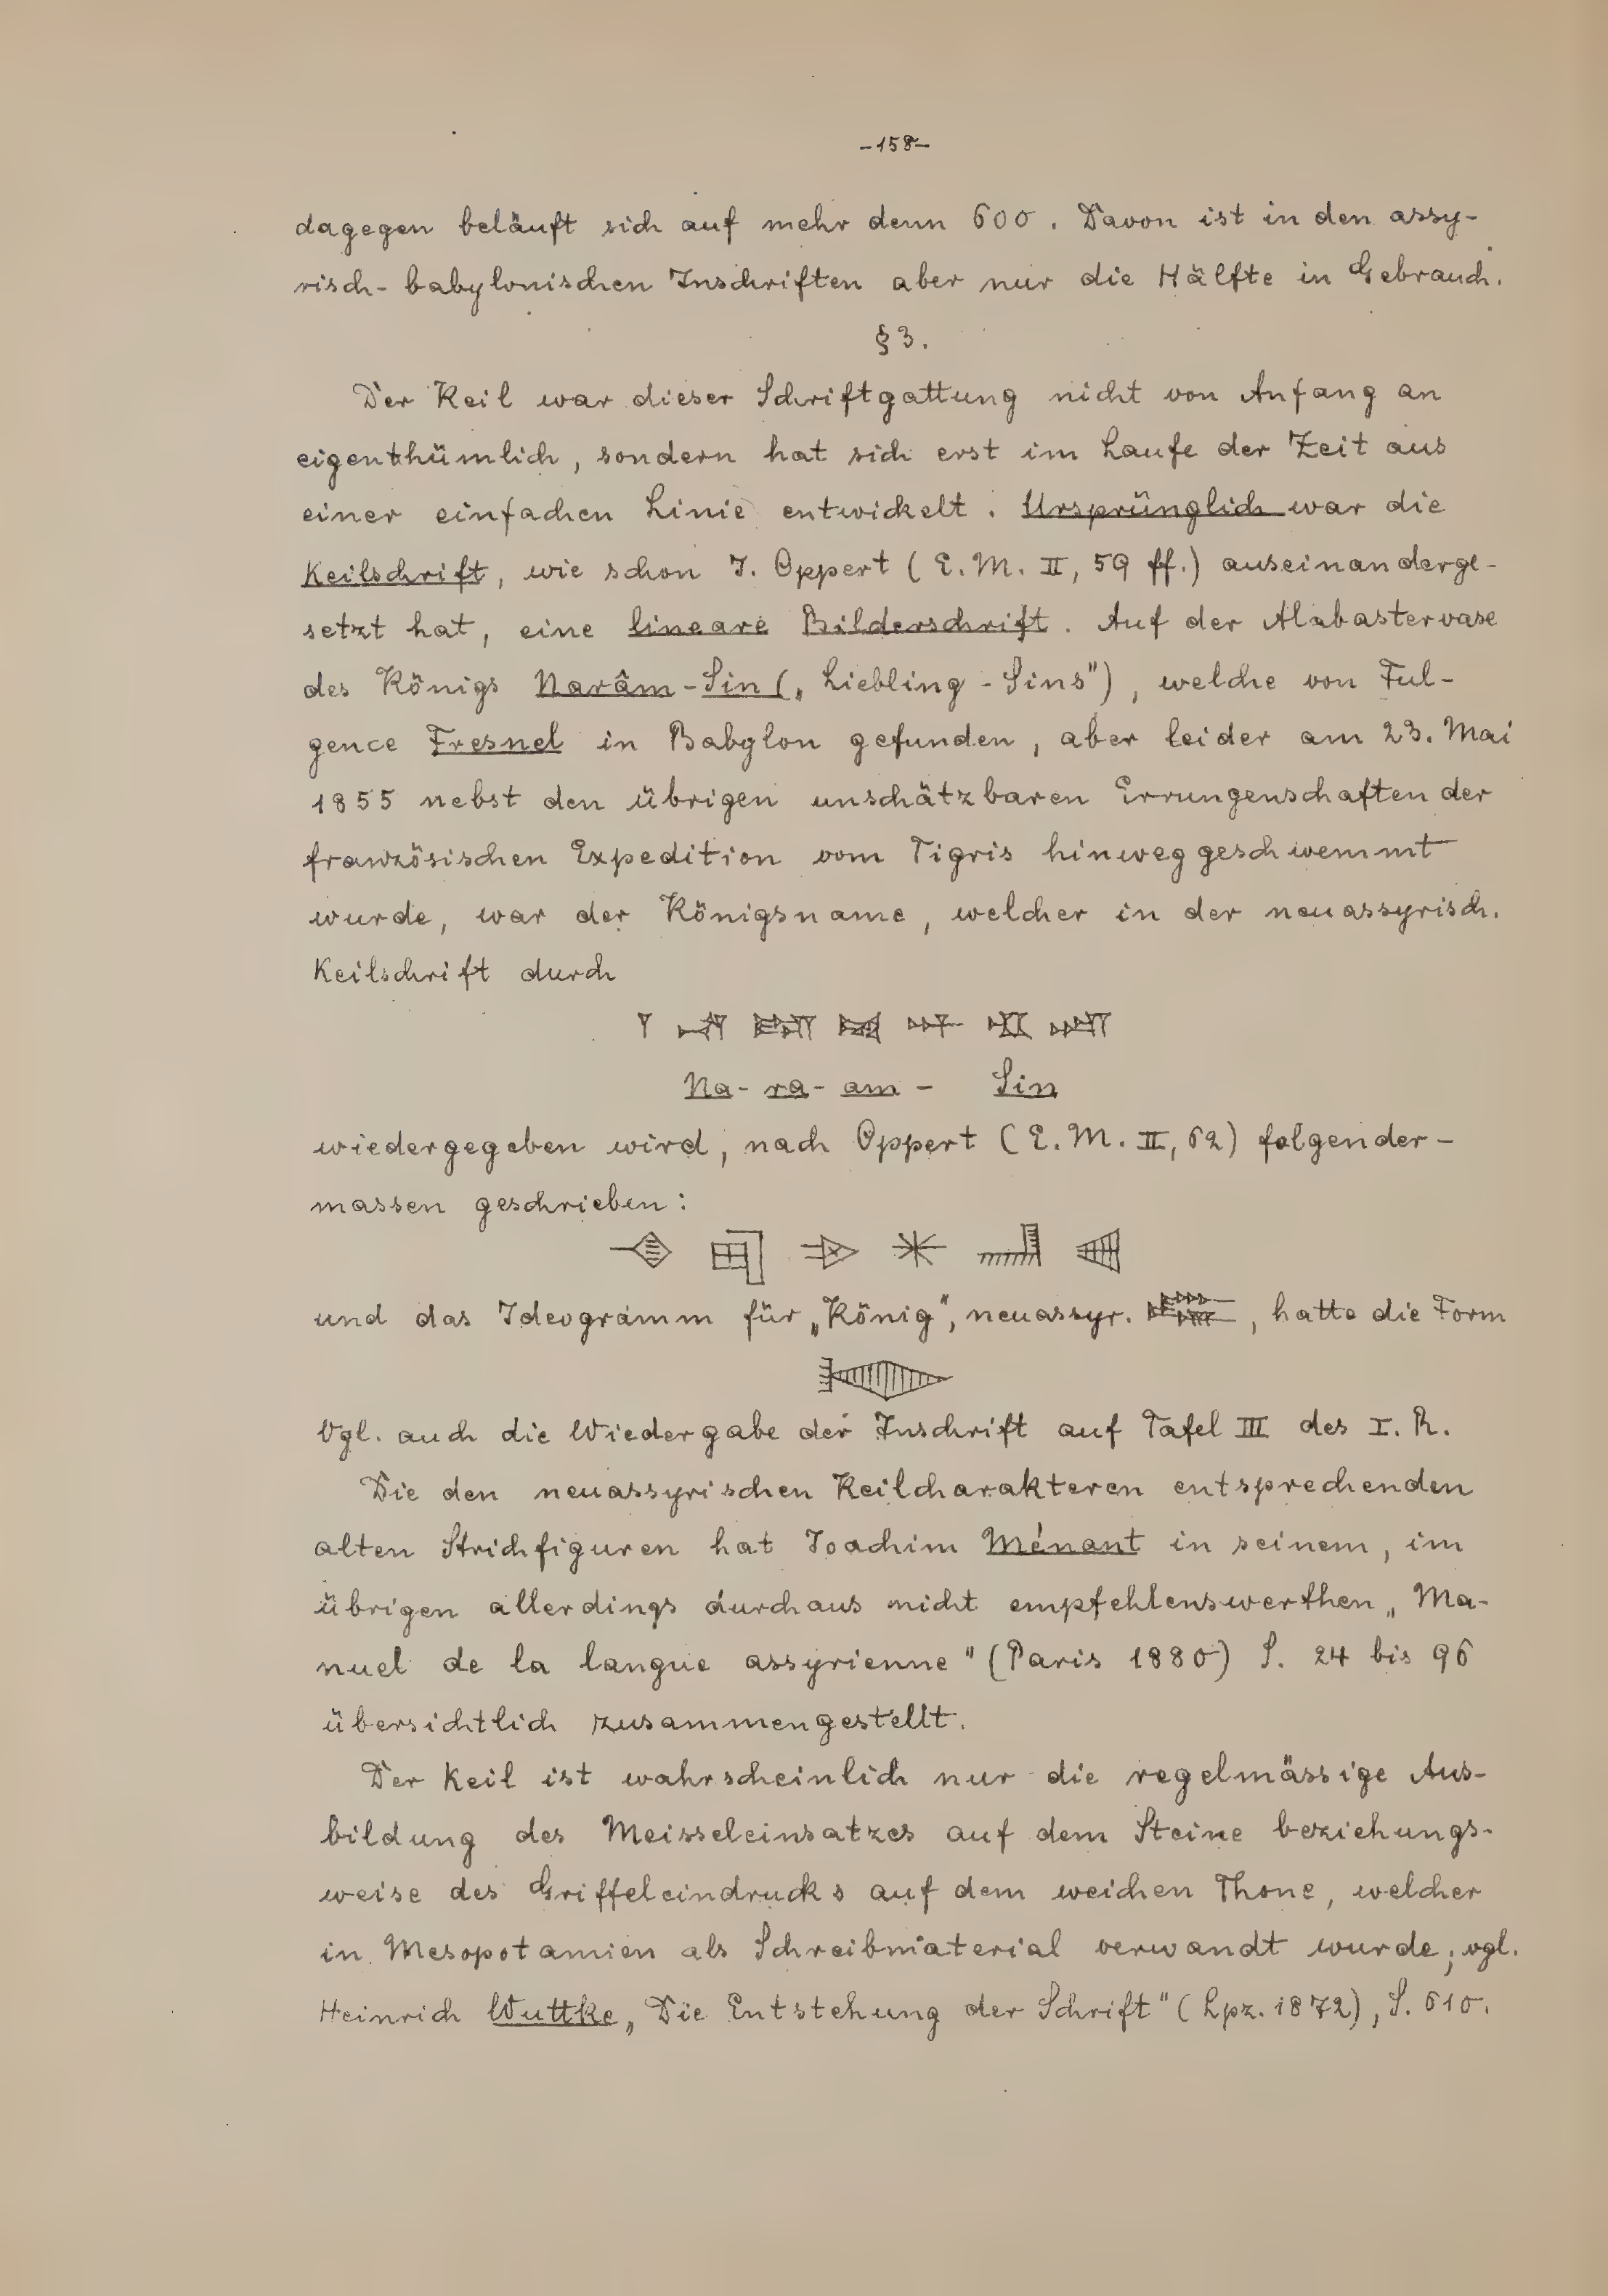 -158-
dagegen beläuft sich auf mehr denn 600. Davon ist in den assy-
risch-babylonischen Inschriften aber nur die Hälfte in Gebrauch.
§ 3.
Der Keil war dieser Schriftgattung nicht von Anfang an
eigenthümlich, sondern hat sich erst im Laufe der Zeit aus
einer einfachen Linie entwickelt. Ursprünglich war die
Keilschrift, wie schon J. Oppert (E. M. II, 59 ff.) auseinanderge-
setzt hat, eine lineare Bilderschrift. Auf der Alabastervase
des Königs Narâm-Sin („Liebling-Sins"), welche von Ful-
gence Fresnel in Babylon gefunden, aber leider am 23. Mai
1855 nebst den übrigen unschätzbaren Errungenschaften der
französischen Expedition vom Tigris hinweggeschwemmt
wurde, war der Königsname, welcher in der neuassyrisch.
Keilschrift durch
Na-ra-am- Sin
wiedergegeben wird, nach Oppert (E. M. II, 62) folgender-
massen geschrieben:
und das Ideogramm für „König", neuassyr. , hatte die Form
Vgl. auch die Wiedergabe der Inschrift auf Tafel III des I. R.
Die den neuassyrischen Keilcharakteren entsprechenden
alten Strichfiguren hat Joachim Ménant in seinem, im
übrigen allerdings durchaus nicht empfehlenswerthen „Ma-
nuel de la langue assyrienne" (Paris 1880) S. 24 bis 96
übersichtlich zusammengestellt.
Der Keil ist wahrscheinlich nur die regelmässige Aus-
bildung des Meisseleinsatzes auf dem Steine beziehungs-
weise des Griffeleindrucks auf dem weichen Thone, welcher
in Mesopotamien als Schreibmaterial verwandt wurde; vgl.
Heinrich Wuttke „Die Entstehung der Schrift" (Lpz. 1872), S. 610.